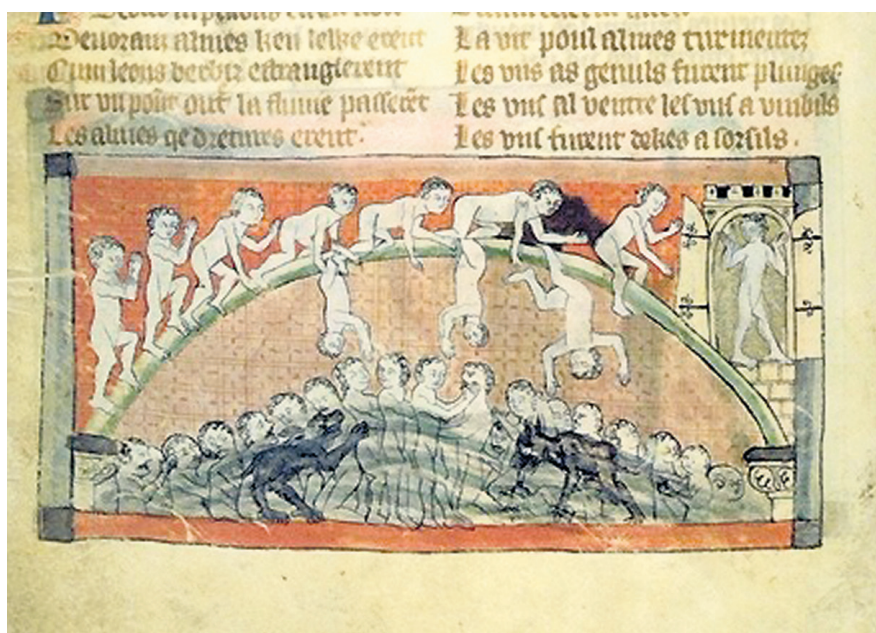 almes ken erent
Cum leons berbiz estranglerent
Sur vn pont out la flume passerēt
Les almes qe dreitures erent.
La vit poul almes turmentez
Les vns as genuils furent plungez
Les vns al ventre les vns a
Les vns furent dekes a sorsils.